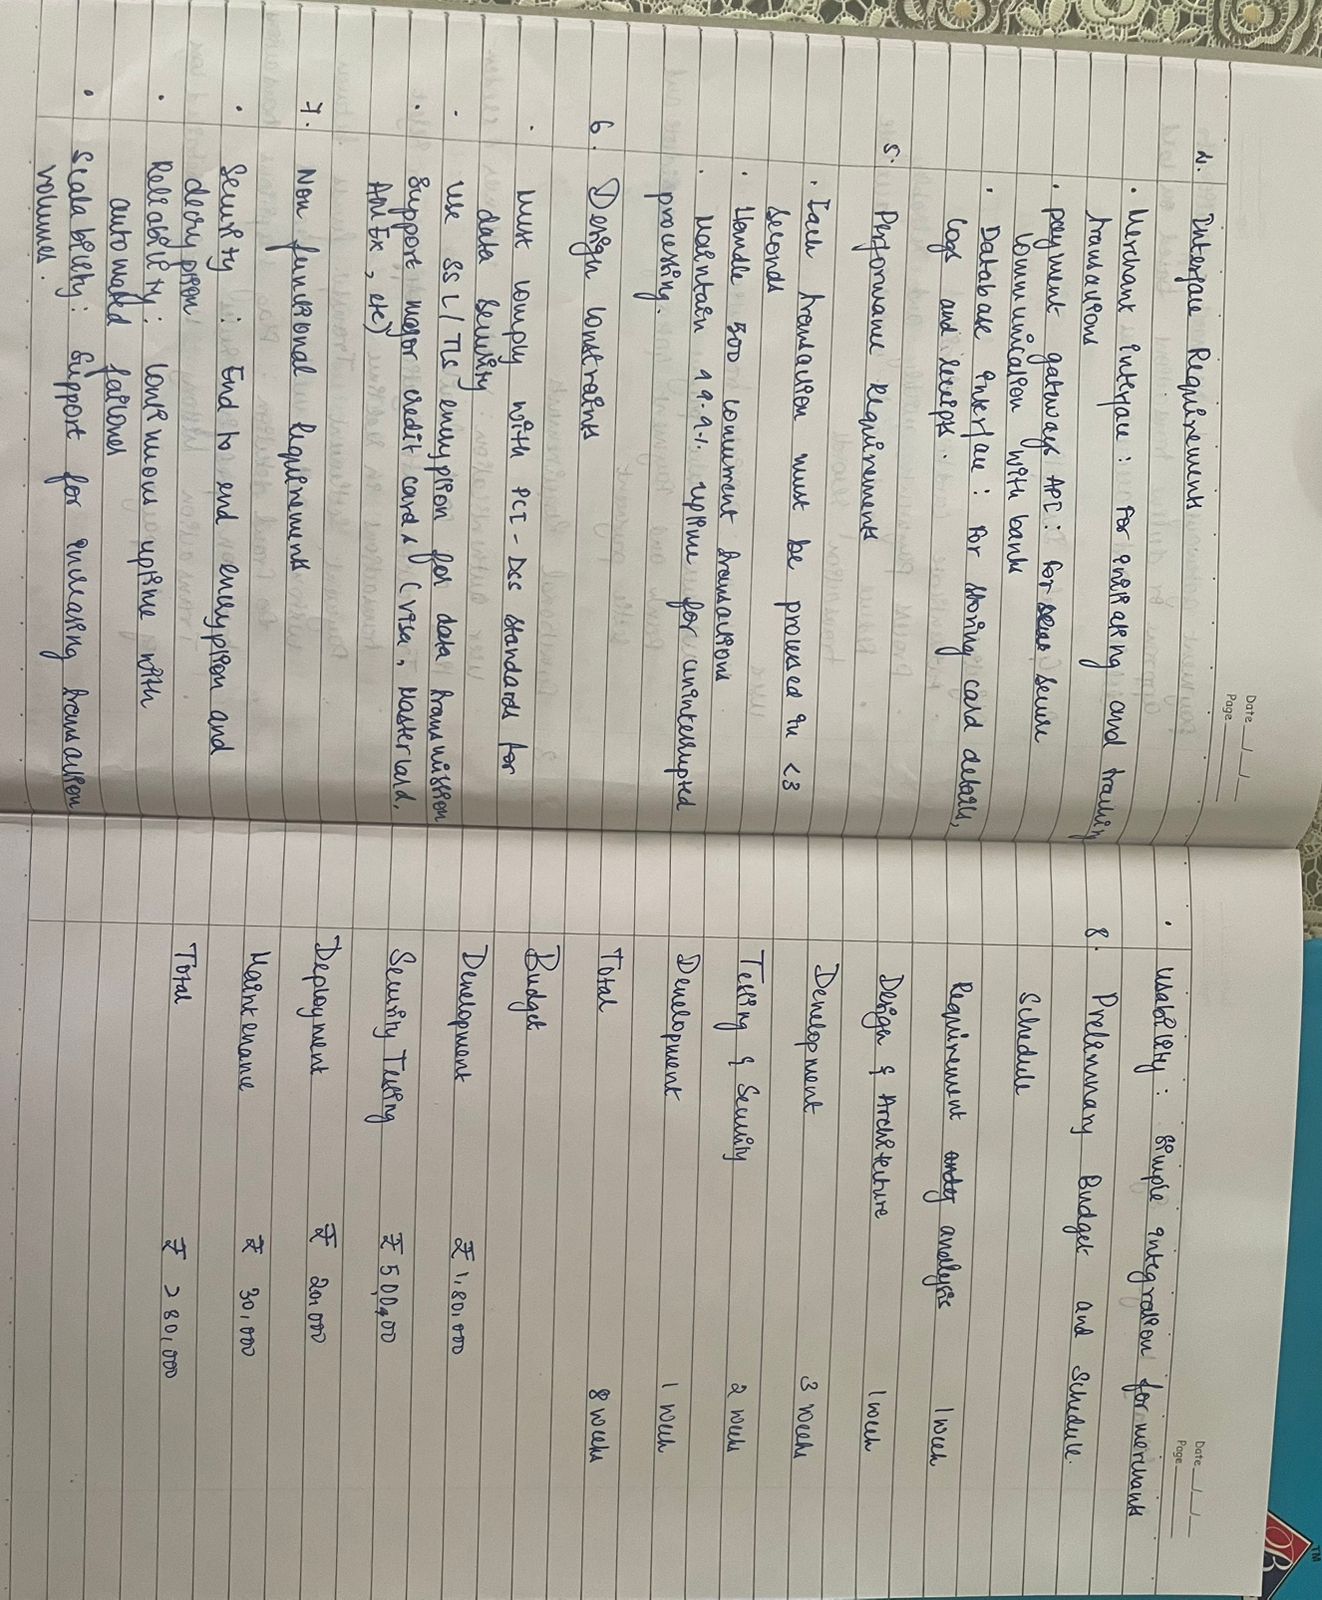 Date __/__/__
Page ______
4. Interface Requirements
• Merchant interface : for initiating and tracking
transactions
• payment gateways API : for secure
communication with banks
• Database interface : for storing card details,
logs and receipts.
5. Performance Requirements
• Each transaction must be processed in <3
seconds
• Handle 500 concurrent transactions
• Maintain 99.9% uptime for uninterrupted
processing.
6. Design constraints
• Must comply with PCI - DSS standards for
data security
• Use SSL/TLS encryption for data transmission
• Support major credit cards (visa, Mastercard,
AmEx, etc)
7. Non functional requirements
• Security : End to end encryption and
decryption
• Reliability : continuous uptime with
automated failover
• Scalability : Support for increasing transaction
volumes.
Date __/__/__
Page ______
• Usability : Simple integration for merchants
8. Preliminary Budget and Schedule.
Schedule
Requirement analysis 1 week
Design & Architecture 1 week
Development 3 weeks
Testing & Security 2 weeks
Development 1 week
Total 8 weeks
Budget
Development ₹ 1,80,000
Security Testing ₹ 50,000
Deployment ₹ 20,000
Maintenance ₹ 30,000
Total ₹ 280,000
TM